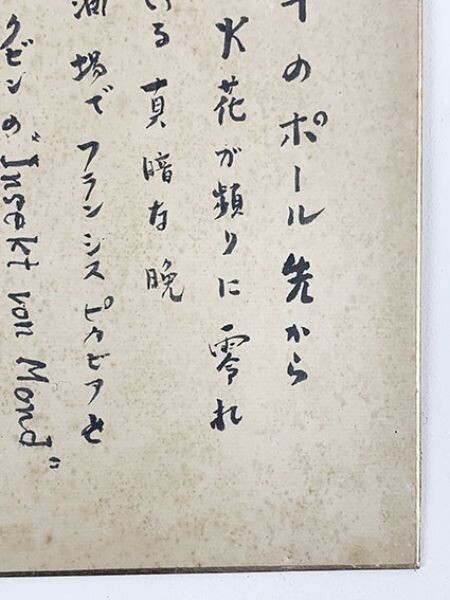 のポール先から
火花が頻りに零れ
いる真暗な晩
場でフランシスピカビアと
クゼンの"Insekt von Mond"